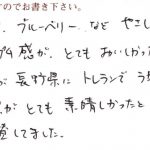 すのでお書き下さい。
、ブルーベリー、など やさし
プチ感が、とても おいしかった
が 長野県に トレランで う
がとても 素晴しかったと
登してました。